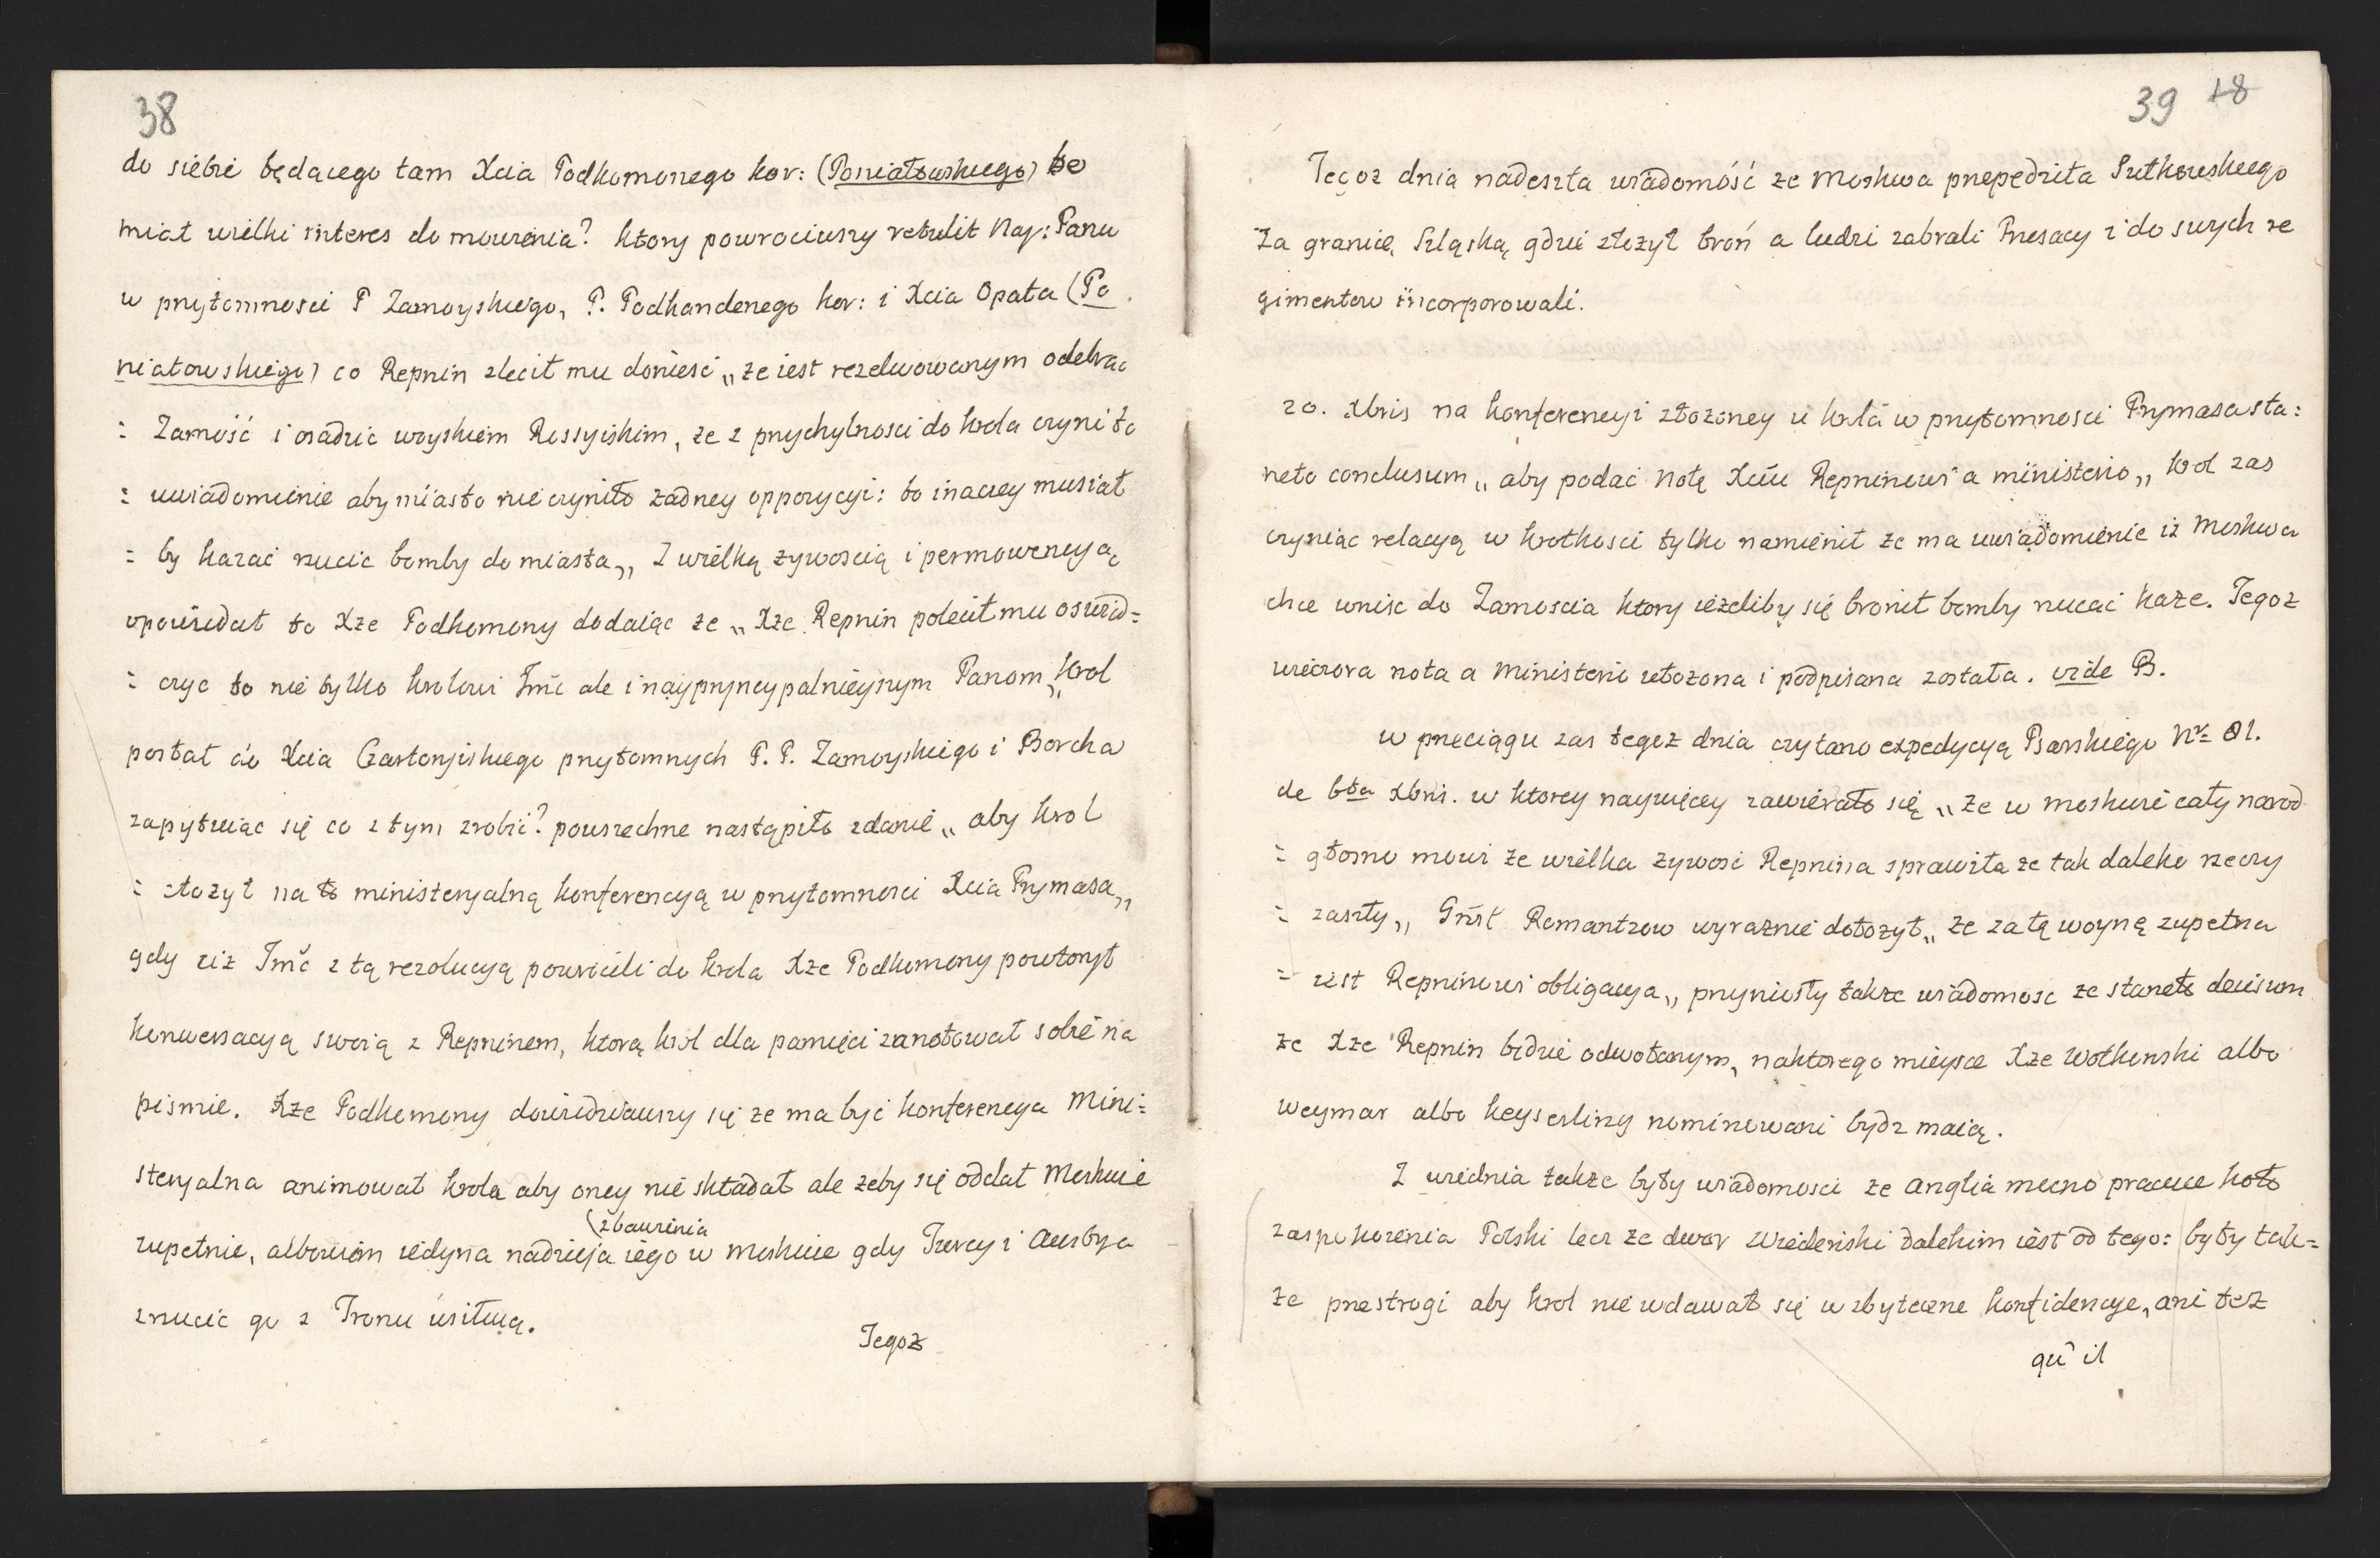 38
do siebie będącego tam Xcia Podkomorzego kor: (Poniatowskiego) bo
miał wielki interes do mowienia? ktory powrociwszy retulit Nay: Panu
w przytomnosci P Zamoyskiego, P. Podkanclerzego kor: i Xcia Opata (Po
niatowskiego) co Repnin zlecił mu donieść „że iest rezolwowanym odebrac
= Zamość i osadzić woyskiem Rossyiskim, że z przychylnosci do krola czyni to
= uwiadomienie aby miasto nie czyniło żadney oppozycyi: bo inaczey musiał
= by kazać rzucic bomby do miasta„ Z wielką żywoscią i permowencyą
opowiedał to Xże Podkomorzy dodaiąc że „Xże Repnin polecił mu oswiad=
= czyc to nie tylko krolowi Jmć ale i nayprzyncypalnieyszym Panom„ Krol
posłał do Xcia Czartoryiskiego przytomnych P. P. Zamoyskiego i Borcha
zapytuiąc się co z tym zrobić? powszechne nastąpiło zdanie „aby krol
= złożył na to ministeryalną konferencyą w przytomnosci Xcia Prymasa„
gdy ciż Jmć z tą rezolucyą powrócili do krola Xże Podkomorzy powtorzył
konwersacyą swoią z Repninem, ktorą krol dla pamięci zanotował sobie na
pismie. Xże Podkomorzy dowiedziawszy się że ma być konferencya Mini=
steryalna animował krola aby oney nie składał ale żeby się oddał Moskwie
(zbawienia
zupełnie, albowiem iedyna nadzieja iego w moskwie gdy Turcy i Austrya
zrzucić go z Tronu usiłuią.
Tegoż
39 18
Tegoż dnia nadeszła wiadomość że Moskwa przepędziła Sutkowskiego
za granicę Szląską, gdzie złożył broń a ludzi zabrali Prusacy i do swych re
gimentow incorporowali.
20. Xbris na konferencyi złożoney u krola w przytomnosci Prymasa sta:
neło conclusum „aby podać notę Xciu Repninowi a ministerio„ krol zas
czyniąc relacyą w krotkosci tylko namienił że ma uwiadomienie iż Moskwa
chce wniść do Zamoscia ktory ieżeliby się bronił bomby rzucać każe. Tegoż
wieczora nota a Ministerio ułożona i podpisana została. vide B.
w przeciągu zas tegoż dnia czytano expedycyą Psarskiego Nr 81.
de 6ta Xbris. w ktorey naywięcey zawierało się „że w moskwie cały narod
= głosno mowi że wielka żywość Repnina sprawiła że tak daleko rzeczy
= zaszły„ Romantzow wyraznie dołożył„ że za tą woynę zupełna
= iest Repninowi obligacya„ przyniosły także wiadomosc że staneło decisum
że Xże Repnin będzie odwołanym, na ktorego mieysce Xże Wołkonski albo
Weymar albo Keyserling nominowani bydz maią.
Z wiednia także były wiadomosci że Anglia mocno pracuie koło
zaspokoienia Polski lecz że dwor Wiedenski dalekim iest od tego: były tak=
że przestrogi aby krol nie wdawał się w zbyteczne konfidencye, ani też
qu'il